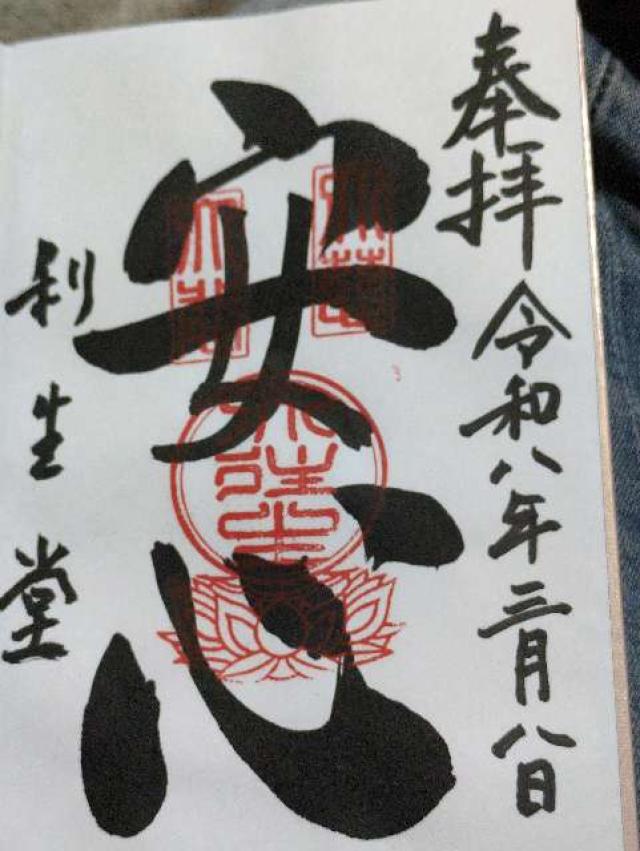 奉拝 令和八年三月八日
安心
利生堂